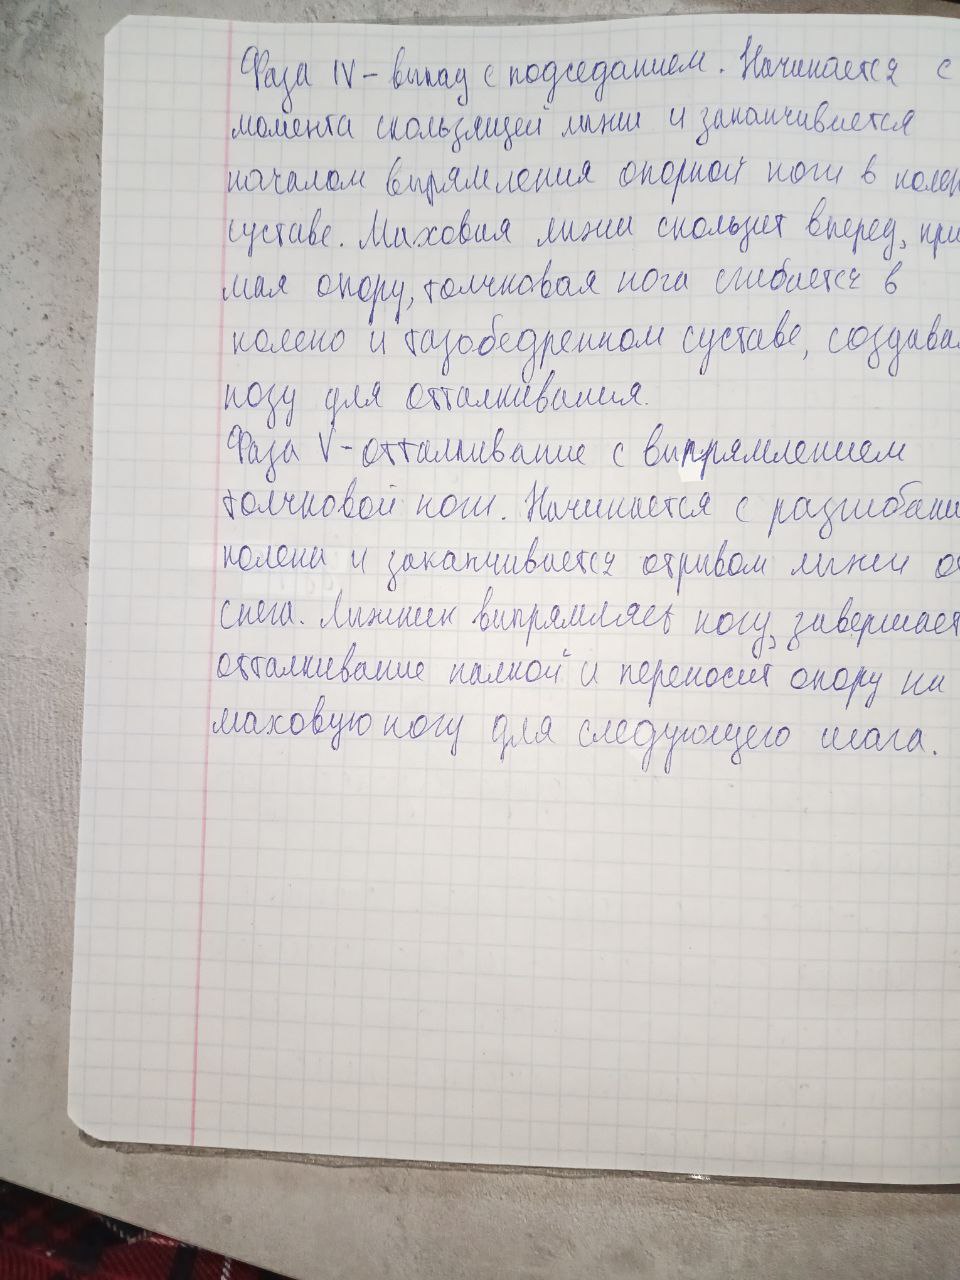 Фаза IV - выпад с подседанием. Начинается с
момента скользящей лыжи и заканчивается
началом выпрямления опорной ноги в колен
суставе. Маховая лыжи скользит вперед, при
мая опору, толчковая нога сгибается в
колено и тазобедренном суставе, создавая
позу для отталкивания.
Фаза V - отталкивание с выпрямлением
толчковой ноги. Начинается с разгибани
колена и заканчивается отрывом лыжи от
снега. Лыжник выпрямляет ногу, завершает
отталкивание палкой и переносит опору на
маховую ногу для следующего шага.